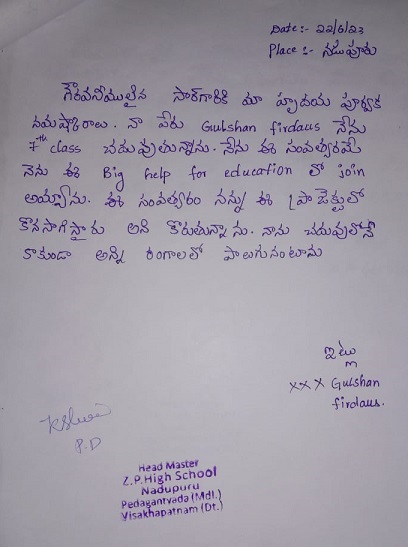 Date:- 22/6/23
Place :- నడుపూరు
గౌరవనీములైన సార్‌గారికి మా హృదయ పూర్వక
నమష్కారాలు. నా పేరు Gulshan firdaus నేను
7th class చదువుతున్నాను. నేను ఈ సంవత్సరమే
నెను ఈ Big help for education లో join
అయ్యాను. ఈ సంవత్సరం నన్ను ఈ ప్రాజెక్టులో
కొనసాగిస్తారు అని కొరుతున్నాను. నాను చదువులోనే
కాకుండా అన్ని రంగాలలో పాలుగునంటాను
ఇట్లు
××× Gulshan
firdaus.
P.D
Head Master
Z.P.High School
Nadupuru
Pedagantyada (Mdl.)
Visakhapatnam (Dt.)